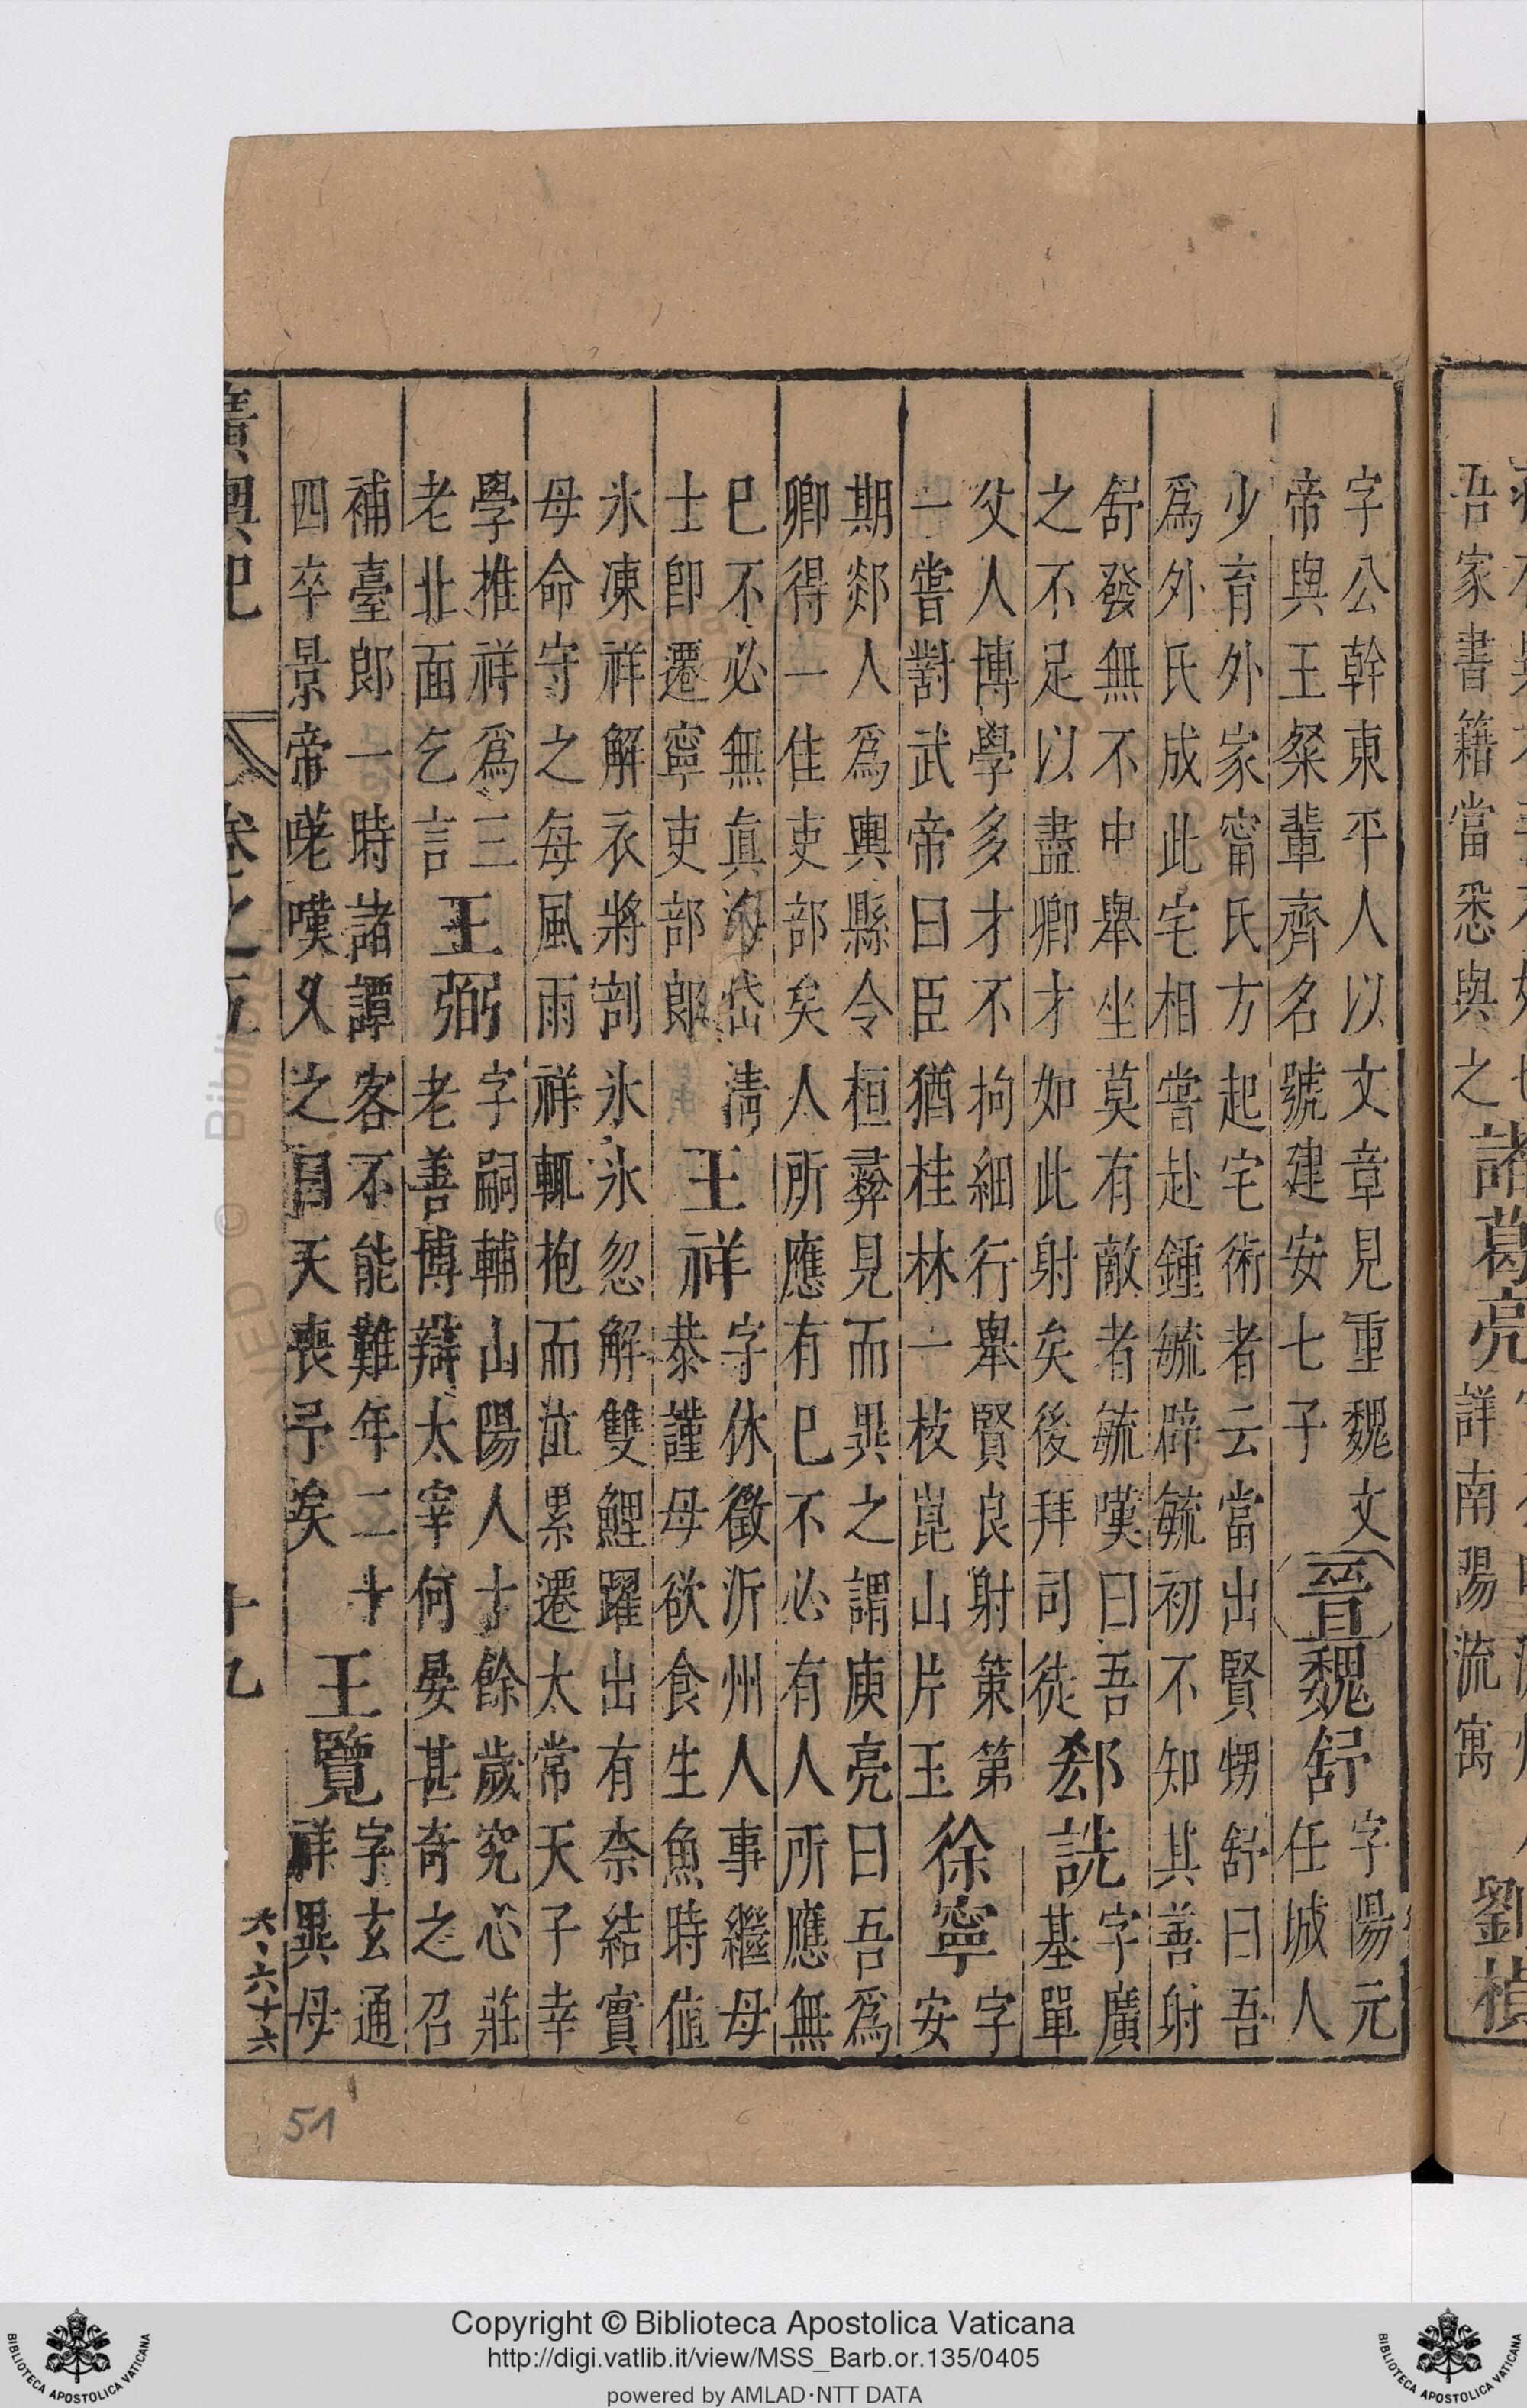 吾家書籍當悉與之
諸葛亮
詳南陽流寓
劉楨
字公幹東平人以文章見重魏文
帝與王粲輩齊名號建安七子
晉
魏舒
字陽元
任城人
少育外家甯氏方起宅術者云當出賢甥舒曰吾
爲外氏成此宅相嘗赴鍾毓辟毓初不知其善射
舒發無不中舉坐莫有敵者毓嘆曰吾
之不足以盡卿才如此射矣後拜司徒
郄詵
字廣
基單
父人博學多才不拘細行舉賢良射策第
一嘗對武帝曰臣猶桂林一枝崑山片玉
徐寧
字
安
期郯人爲輿縣令桓彞見而異之謂庾亮曰吾爲
卿得一佳吏部矣人所應有已不必有人所應無
已不必無真海岱清
士卽遷寧吏部郎
王祥
字休徵沂州人事繼母
恭謹母欲食生魚時値
氷凍祥解衣將剖氷氷忽解雙鯉躍出有柰結實
母命守之每風雨祥輒抱而泣累遷太常天子幸
學推祥爲三
老北面乞言
王弼
字嗣輔山陽人十餘歲究心莊
老善博辯太宰何晏甚奇之召
補臺郎一時諸譚客不能難年二十
四卒景帝咾嘆久之曰天喪予矣
王覽
字玄通
祥異母
廣輿記 卷之五 十九
六、六十六
51
Copyright © Biblioteca Apostolica Vaticana
http://digi.vatlib.it/view/MSS_Barb.or.135/0405
powered by AMLAD·NTT DATA